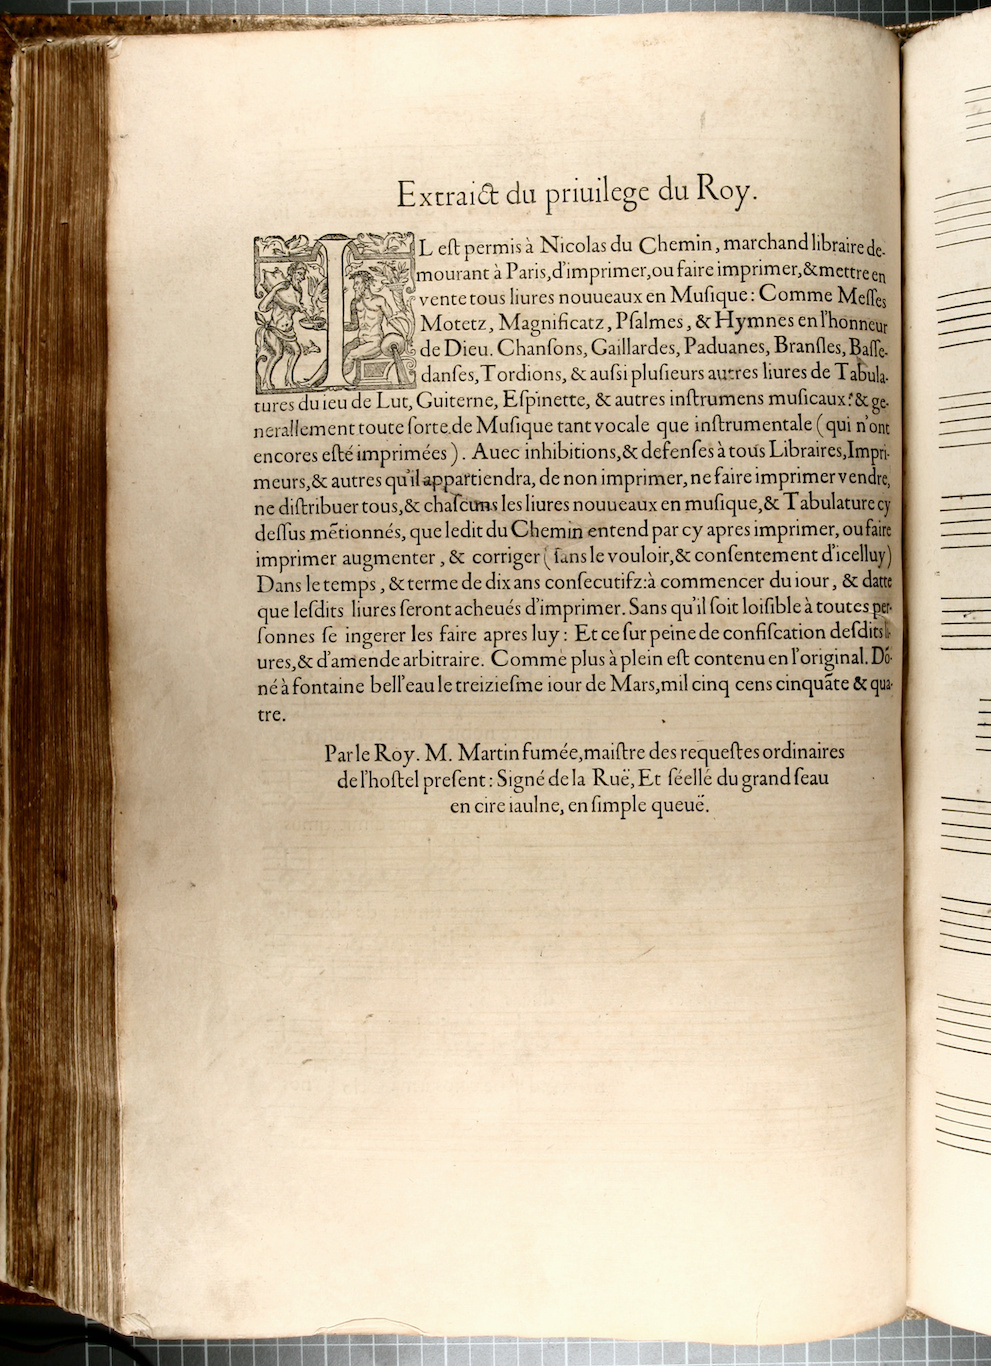 Extraict du priuilege du Roy.
IL eſt permis à Nicolas du Chemin, marchand libraire de-
mourant à Paris, d'imprimer, ou faire imprimer, & mettre en
vente tous liures nouueaux en Muſique: Comme Meſſes
Motetz, Magnificatz, Pſalmes, & Hymnes en l'honneur
de Dieu. Chanſons, Gaillardes, Paduanes, Branſles, Baſſe-
danſes, Tordions, & auſsi pluſieurs autres liures de Tabula-
tures du ieu de Lut, Guiterne, Eſpinette, & autres inſtrumens muſicaux: & ge-
nerallement toute ſorte de Muſique tant vocale que inſtrumentale (qui n'ont
encores eſté imprimées). Auec inhibitions, & defenſes à tous Libraires, Impri-
meurs, & autres qu'il appartiendra, de non imprimer, ne faire imprimer vendre,
ne diſtribuer tous, & chaſcuns les liures nouueaux en muſique, & Tabulature cy
deſſus mētionnés, que ledit du Chemin entend par cy apres imprimer, ou faire
imprimer augmenter, & corriger (ſans le vouloir, & conſentement d'icelluy)
Dans le temps, & terme de dix ans conſecutifz: à commencer du iour, & datte
que leſdits liures ſeront acheués d'imprimer. Sans qu'il ſoit loiſible à toutes per-
ſonnes ſe ingerer les faire apres luy: Et ce ſur peine de confiſcation deſdits li-
ures, & d'amende arbitraire. Comme plus à plein eſt contenu en l'original. Dō-
né à fontaine bell'eau le treizieſme iour de Mars, mil cinq cens cinquāte & qua-
tre.
Par le Roy. M. Martin fumée, maiſtre des requeſtes ordinaires
de l'hoſtel preſent: Signé de la Ruë, Et ſéellé du grand ſeau
en cire iaulne, en ſimple queuë.